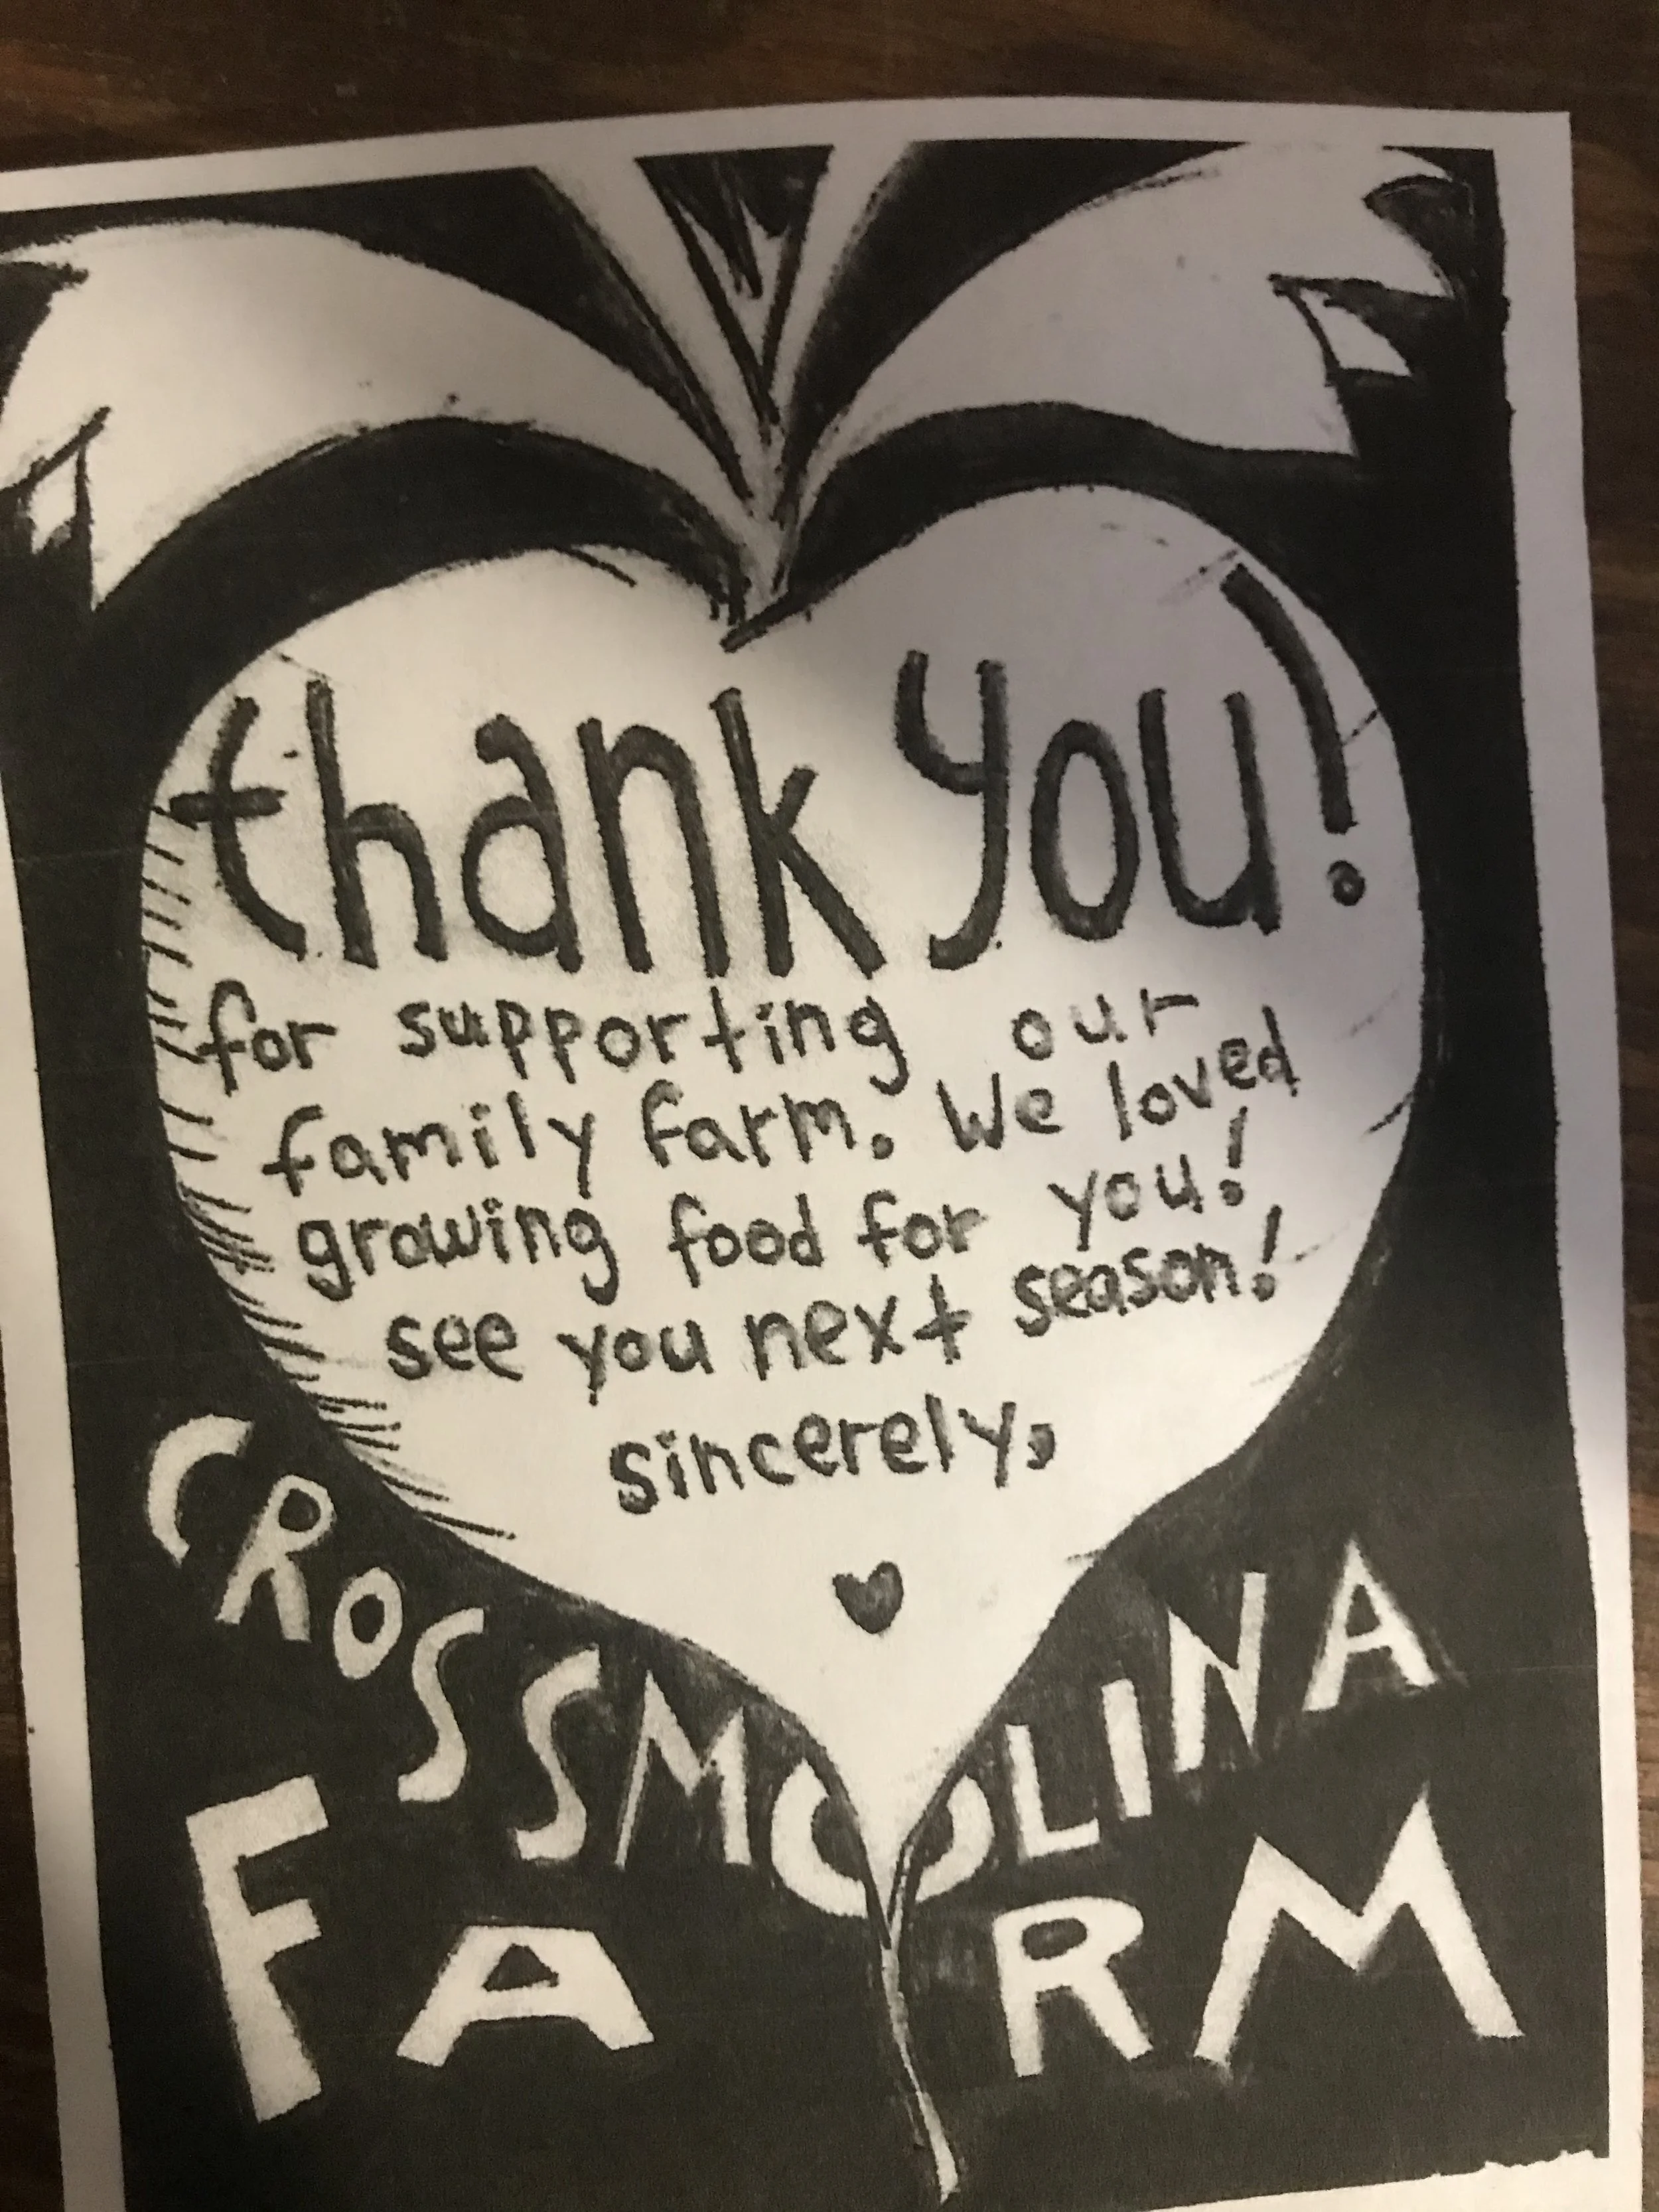 thank you!
for supporting our
family farm. We loved
growing food for you!
see you next season!
sincerely,
CROSSMOLINA
FARM